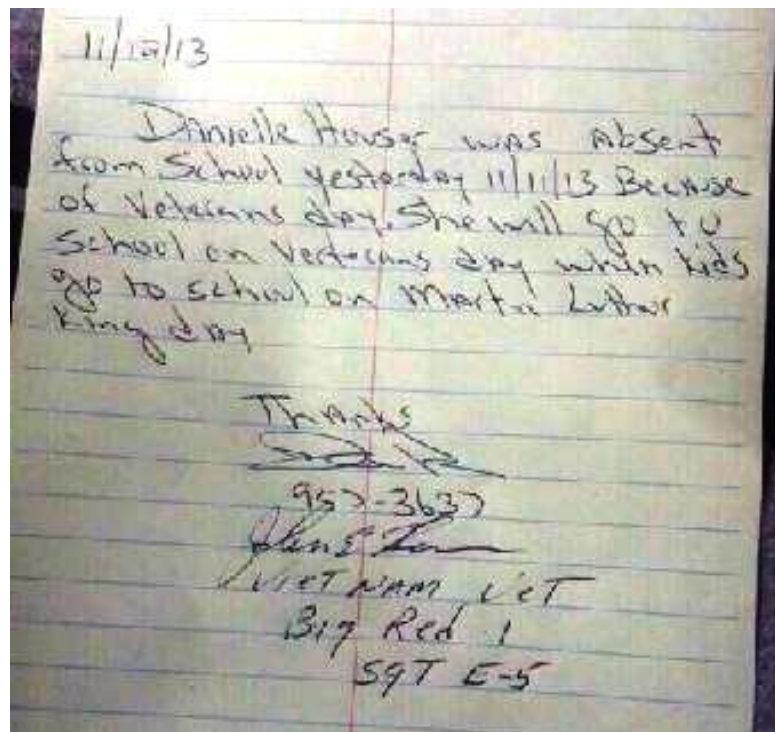 11/12/13
Danielle Houser was Absent
from School yesterday 11/11/13 Because
of Veterans day. She will go to
School on Verterans day when kids
go to school on Martin Luther
King day
Thanks
957-3637
VIET NAM VeT
Big Red 1
SgT E-5